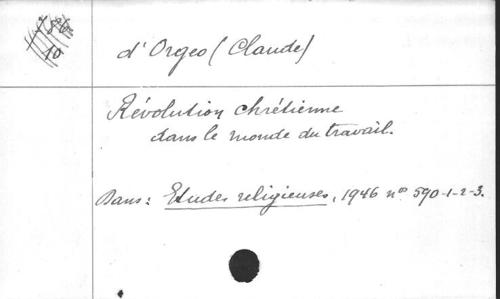 10
d'Orgeo (Claude)
Révolution chrétienne
dans le monde du travail.
Dans: Etudes religieuses, 1946 nos 590-1-2-3.